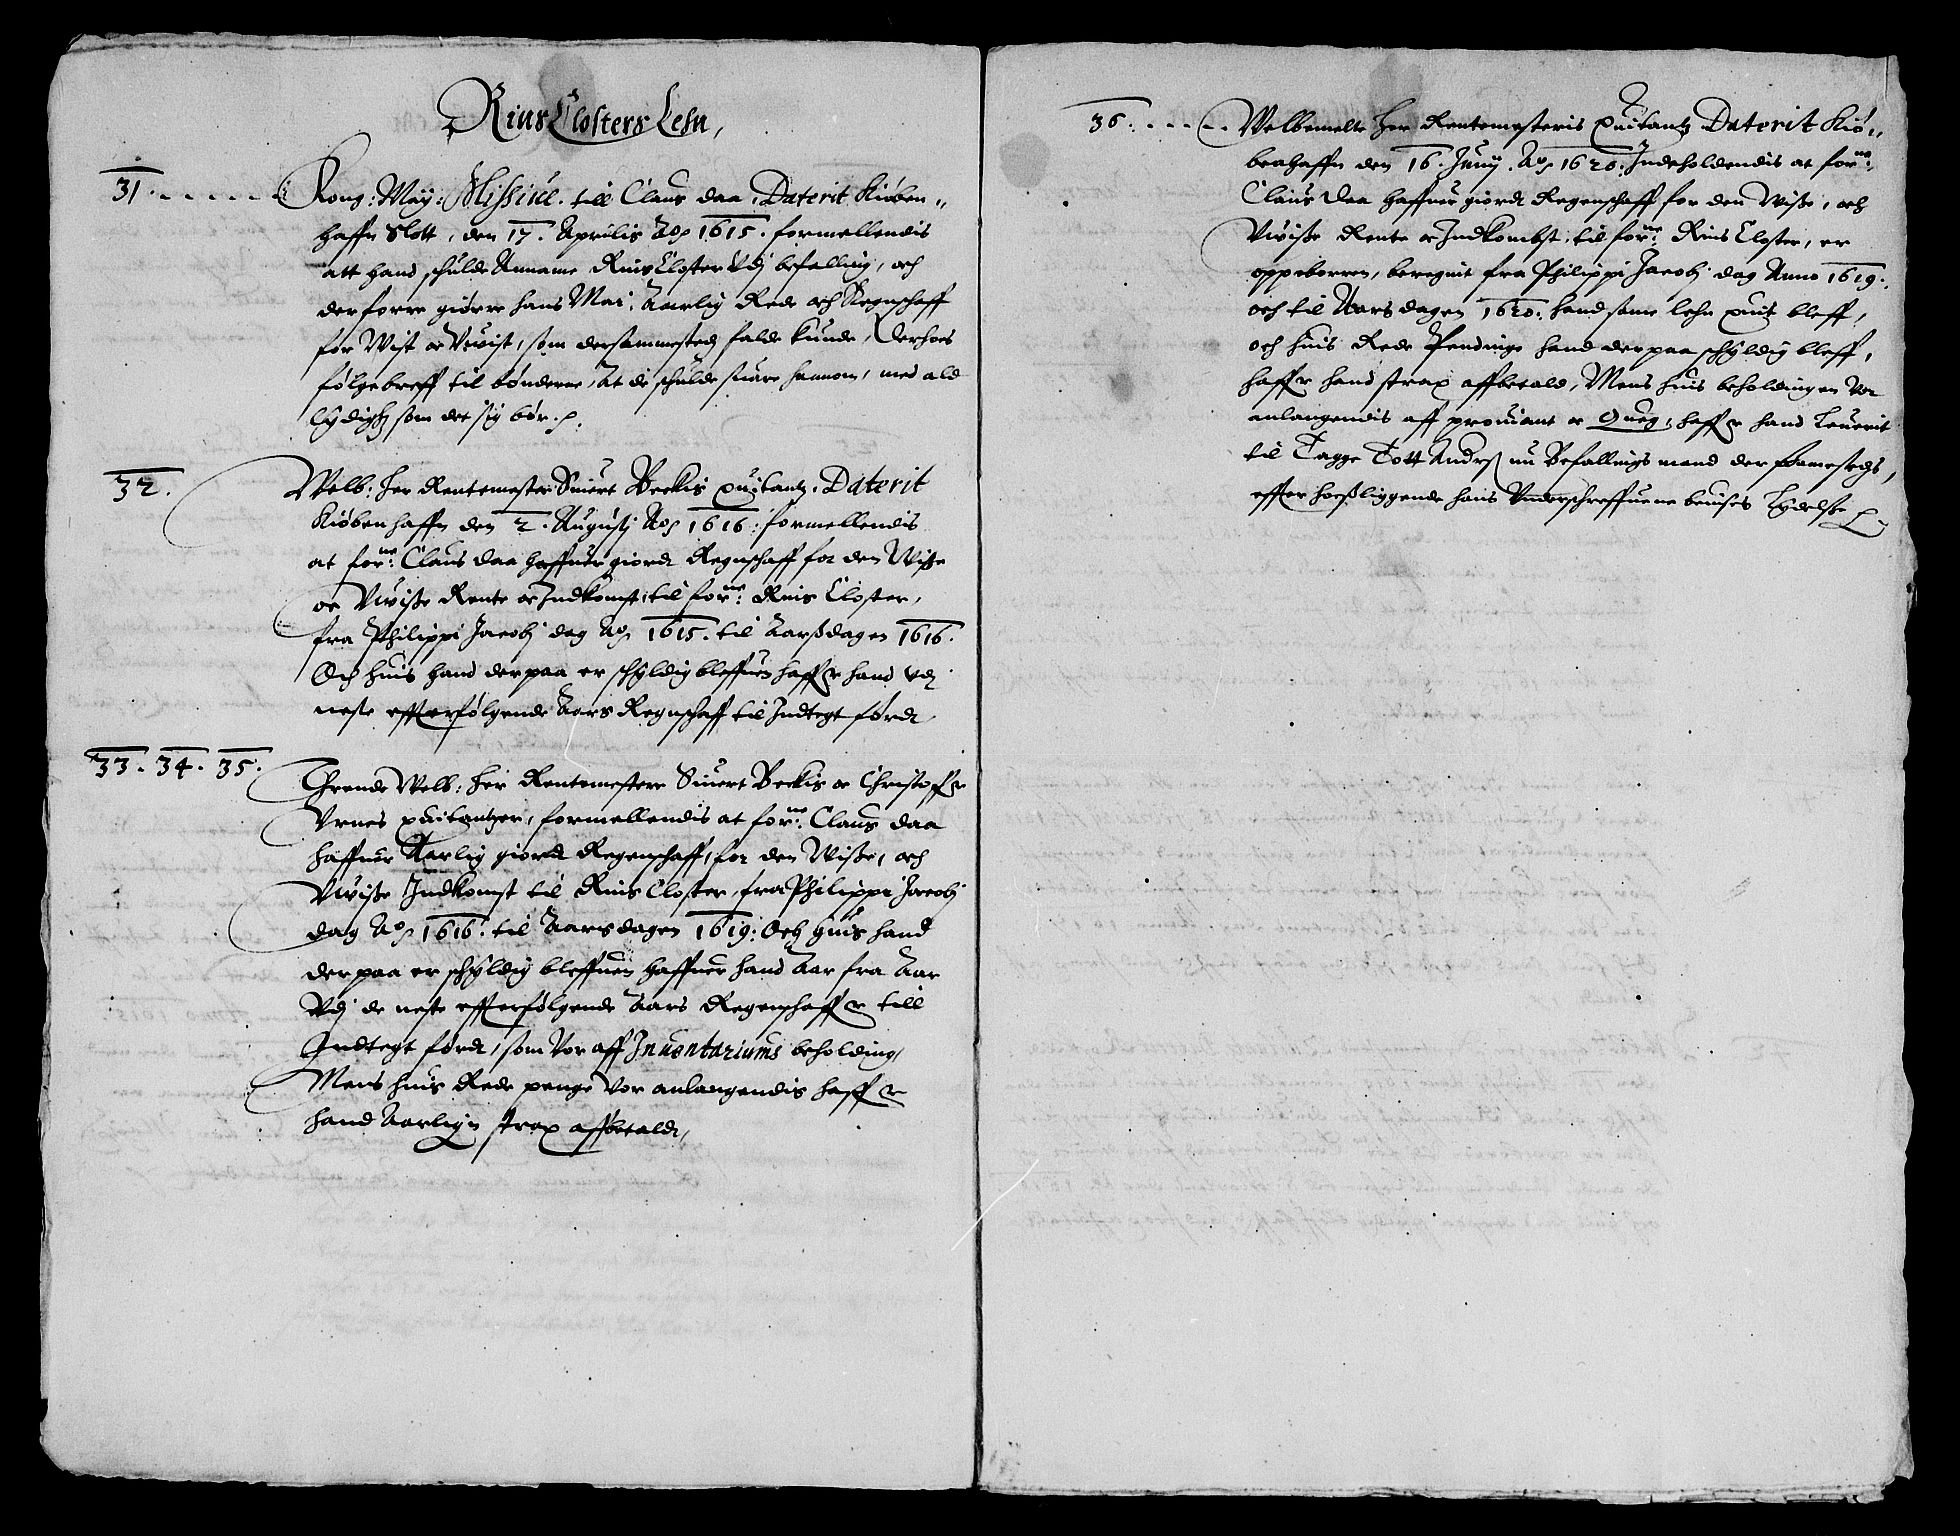 Rins Closters Lehn,
31. Kong: May: Missiue. till Claus daa, Daterit Kiøben„
haffn Slott, den 17. Aprilis Aoͦ 1615. formellendis
att hand schulde Anname Rins Closter Vdj befalling, och
derforre giørre hans Mai: Aarlig Rede och Regnschaff
for Wist oc Vwist, som dersammestedz falde kunde, Derhoes
følgebreff til bønderne, At de schulde suare hannom, med ald
lydighz som det sig bør.
32. Welb: Her Rentemester Siuert Beckis quitantz. Daterit
Kiøbenhaffn den 2. Augustj Aoͦ 1616. formellendis
at forⁿᵉ: Claus daa haffuer giordt Regnschaff for den Wisse
oc Vwisse Rente oc Indkomst til forⁿᵉ: Rins Closter,
fra Philippi Jacobj dag Aoͦ 1615. til Aarssdagen 1616.
Och huis hand derpaa er schyldig bleffuen haffr hand vdj
neste effterfølgende Aars Regnschaff til Indtegt førdt,
33. 34. 35. Thrende Welb: Her Rentemestere Siuert Beckis oc Christoffr
Vrnes quitantzer, formellendis at forⁿᵉ: Claus daa
haffuer Aarlig giordt Regenschaff, for den Wisse, och
Vwisse Indkomst til Rins Closter, fra Philippi Jacobj
dag Aoͦ 1616. til Aarsdagen 1619: Och huis hand
derpaa er schyldig bleffuen haffuer hand Aar fra Aar
Vdj de neste effterfølgende Aars Regenschaffr till
Indtegt førdt, som Vor aff Inuentariums beholding,
Mens huis Rede penge Vor anlangendis haffr
hand Aarlign strax affbetaldt,
36. Welbemelte Her Rentemesteris quitantz Daterit Kiø„
benhaffn den 16. Junij. Aoͦ 1620. Indeholdendis at forⁿᵉ:
Claus Daa haffuer giordt Regenschaff for den Wisse, och
Vwisse Rente oc Indkombst til forⁿᵉ: Rins Closter, er
oppeborren, beregnit fra Philippi Jacobj dag Anno 1619.
och til Aarsdagen 1620. hand same lehn quit bleff,
och huis Rede Pendinge hand derpaa schyldig bleff,
haffr hand strax affbetald, Mens huis beholdingen Vor
anlangendis aff prouiant oc Queg, haffr hand Leuerit
til Tagge Tott Anders: nu Befallings mand dersamestedz,
effter hosliggende hans Vnderschreffuene beuises Lydelse